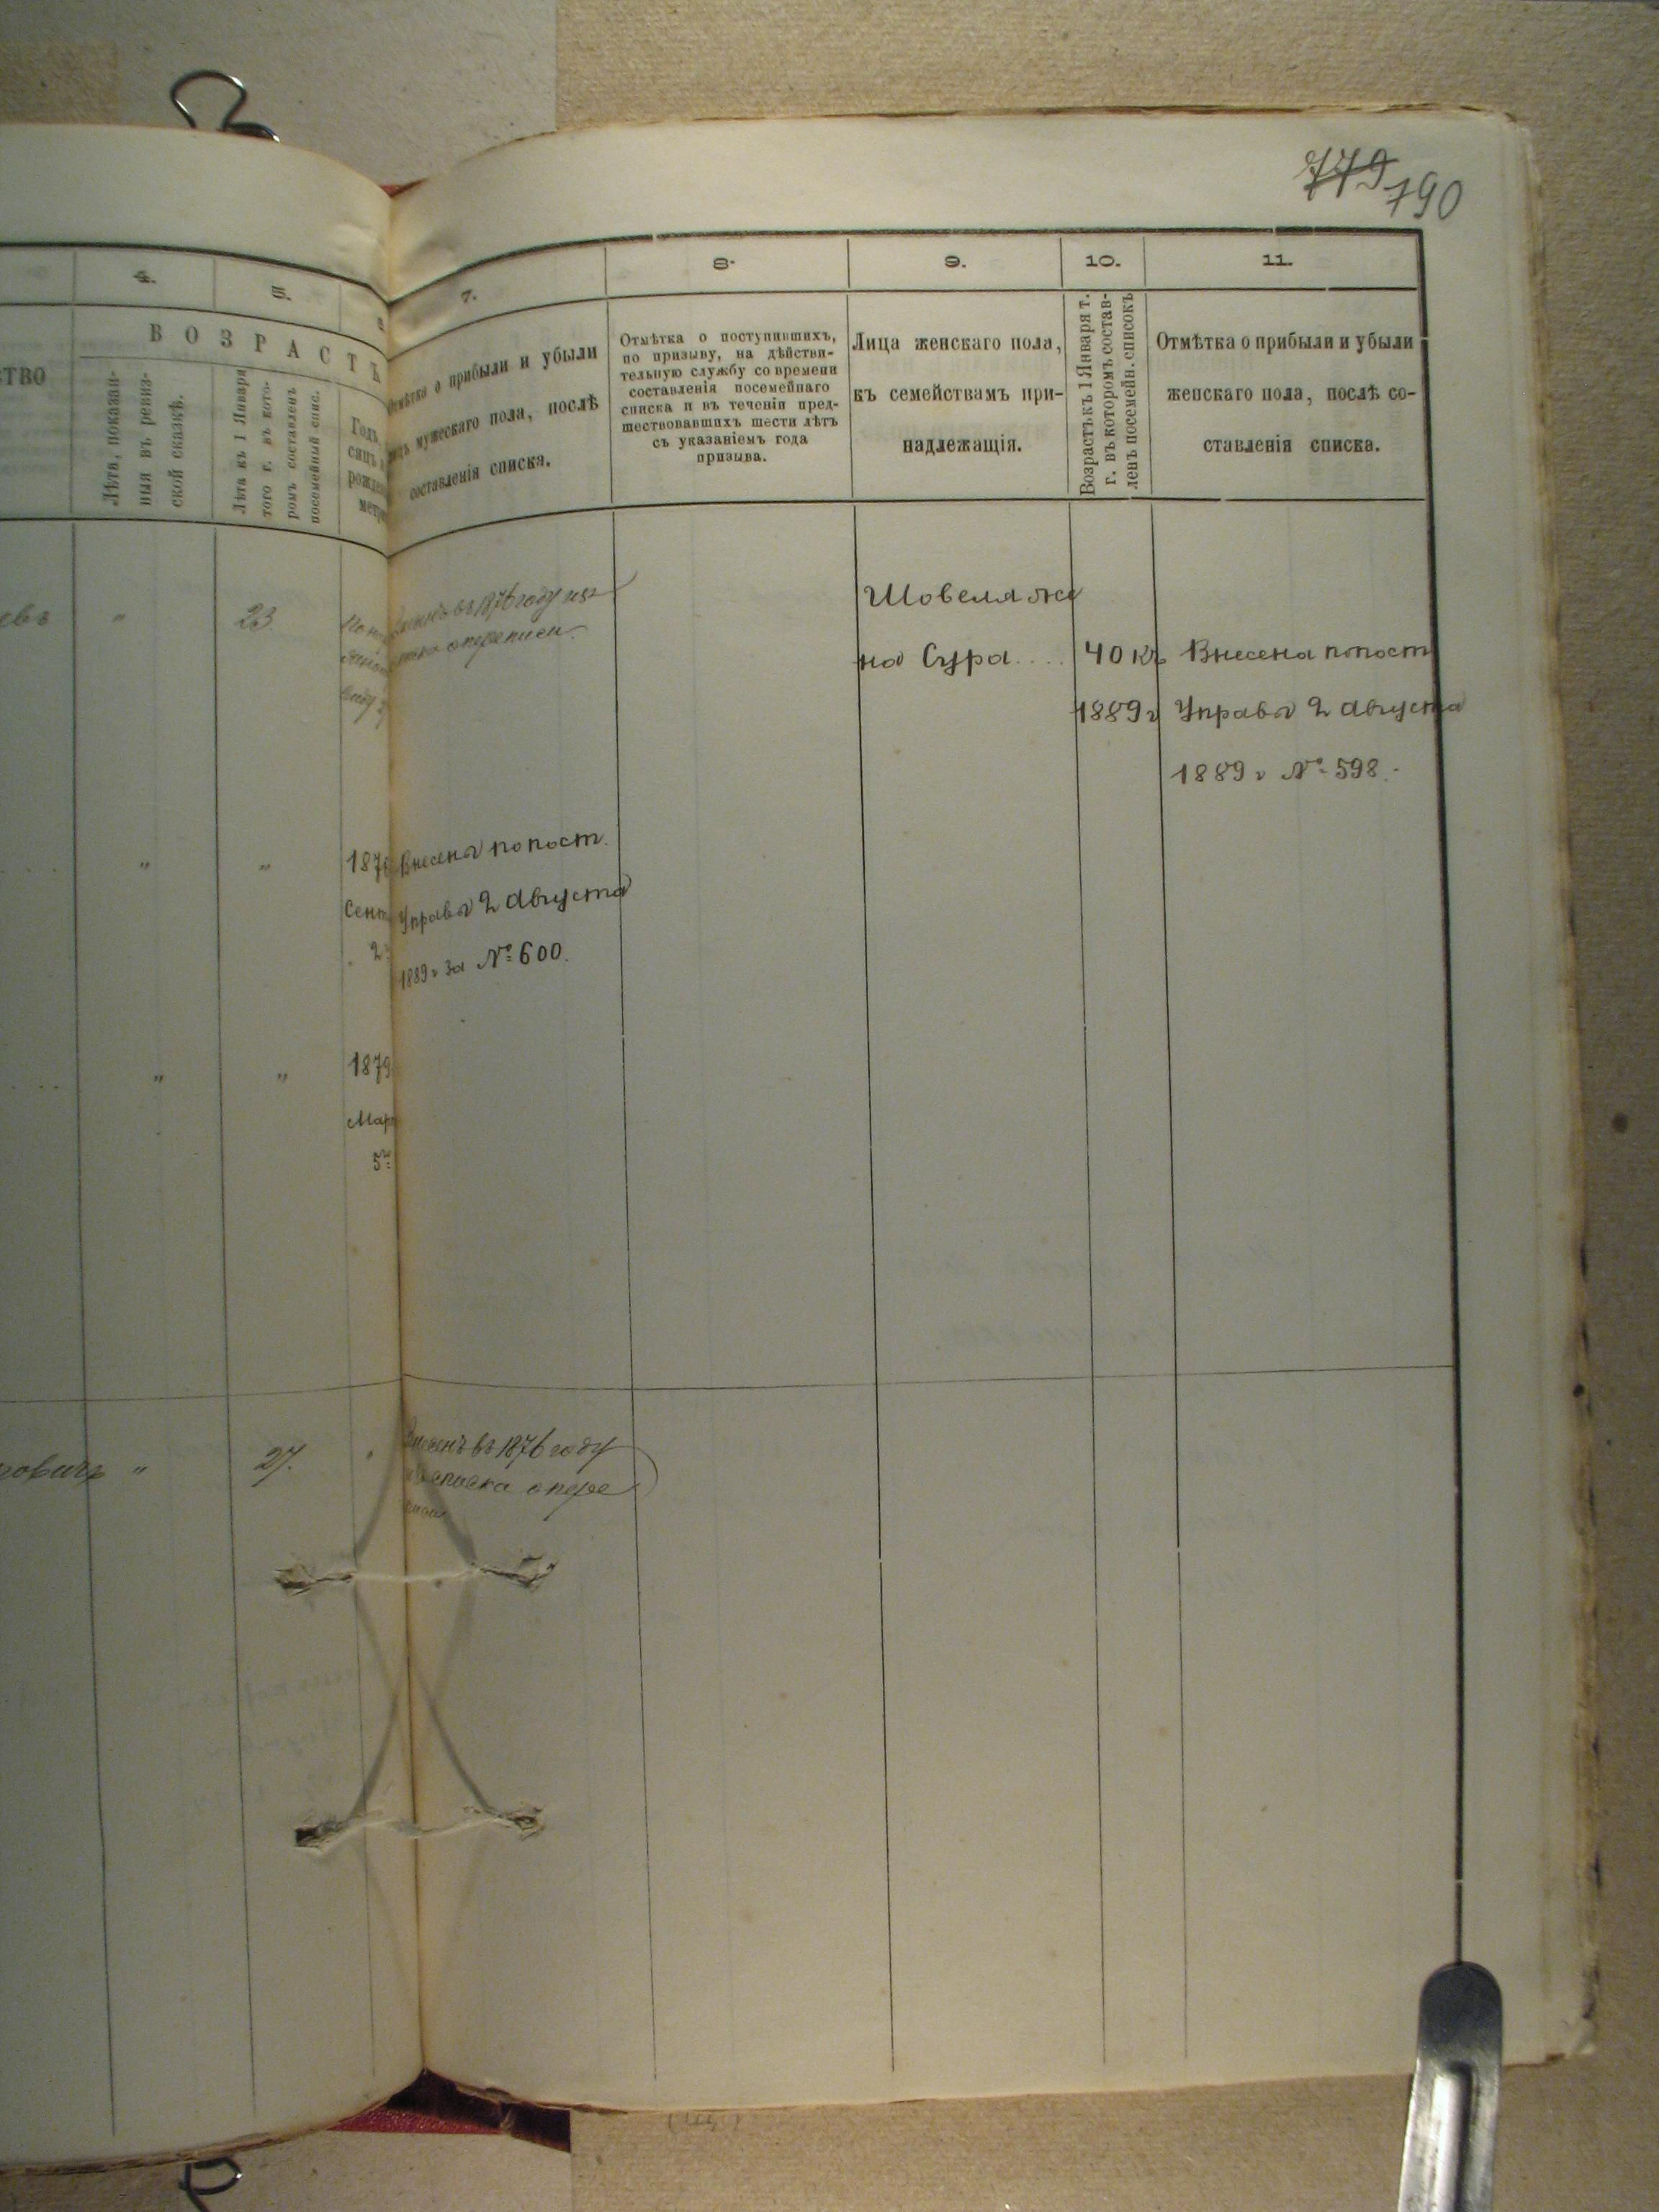 779 790
4.
5.
7.
8.
9.
10.
11.
ВОЗРАСТЪ
Лѣта, показан-
ныя въ ревиз-
ской сказкѣ.
Лѣта къ 1 Января
того г. въ кото-
ромъ составленъ
посемейный спис.
о прибыли и убыли
мужескаго пола, послѣ
составленія списка.
Отмѣтка о поступившихъ,
по призыву, на дѣйстви-
тельную службу со времени
составленія посемейнаго
списка и въ теченіи пред-
шествовавшихъ шести лѣтъ
съ указаніемъ года
призыва.
Лица женскаго пола,
къ семействамъ при-
надлежащія.
Возрастъ къ 1 Января т.
г. въ которомъ состав-
ленъ посемейн. списокъ
Отмѣтка о прибыли и убыли
женскаго пола, послѣ со-
ставленія списка.
23
въ 1876 году изъ
о переписи
Шовеля же
на Сура.... 40 къ Внесена по пост
1889 г Управы 2 Августа
1889 г № 598.
" " Внесены по пост.
Сент Управы 2 Августа
2 1889 г за № 600.
" " 1879
Мар
5
" 27. въ 1876 году
списка о пере